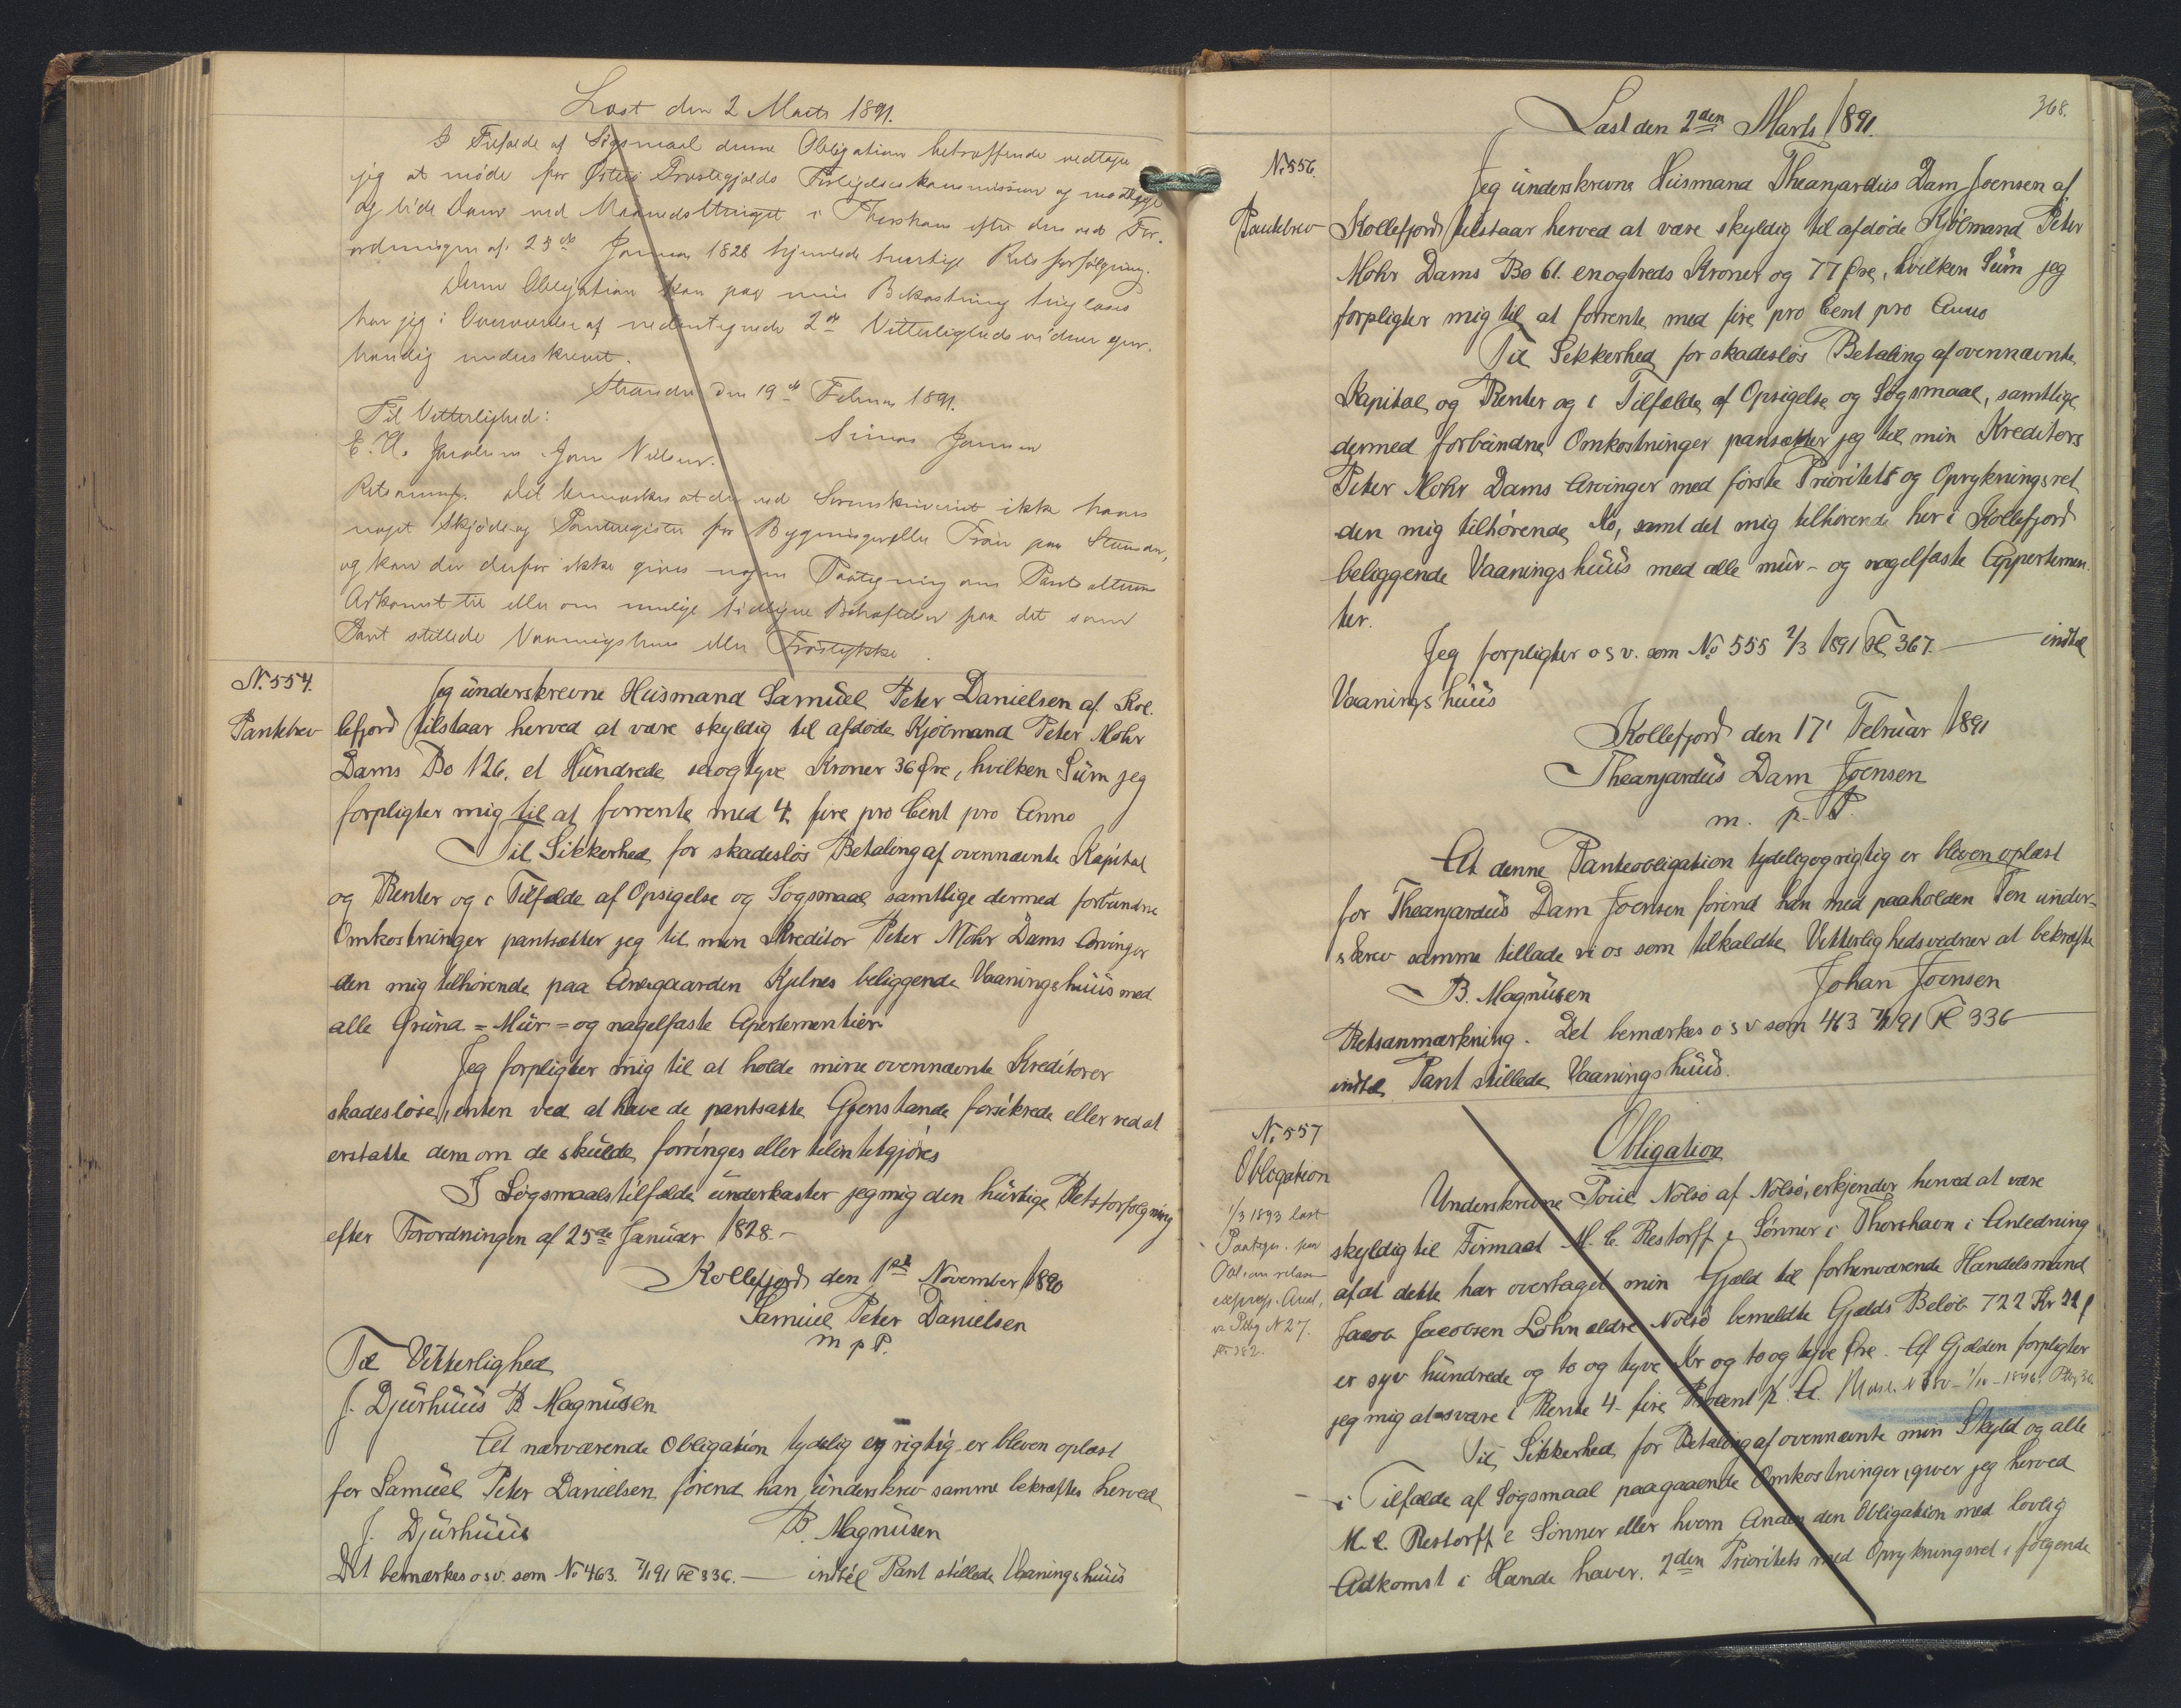 Læst den 2 Marts 1891.
I Tilfælde af Søgsmaal denne Obligation betræffende vedtager
jeg at møde for Østerø Provstegjælds Forligelseskommission og modtage
og lide Dom ved Maanedsthinget i Thorshavn efter den ved For-
ordningen af 25de Januar 1828 hjemlede hurtige Rets forfølgning.
Denne Obligation kan paa min Bekostning tinglæses
har jeg i Overværelse af nedentegnede 2de Vitterlighedsvidner egen-
hændig underskrevet.
Strander den 19de Februar 1891.
Til Vitterlighed:
Simon Joensen
E. U. Jacobsen Joen Nielsen.
Retsanmk. Det bemærkes at der ved Sorenskriveriet ikke haves
noget Skjøde og Panteregister for Bygninger eller Trøer paa Strander,
og kan der derfor ikke gives nogen Paategning om Pantsætterens
Adkomst til eller om mulige tidligere Behæftelser paa det som
Pant stillede Vaaningshus eller Trøstykke.
No. 554.
Pantebrev
Jeg underskrevne Husmand Samuel Peter Danielsen af Kol-
lefjord tilstaar herved at være skyldig til afdøde Kjøbmand Peter Mohr
Dams Bo 126. et Hundrede sexogtyve Kroner 36 Øre, hvilken Sum jeg
forpligter mig til at forrente med 4 fire pro Cent pro Anno
Til Sikkerhed for skadesløs Betaling af ovennævnte Kapital
og Renter og i Tilfælde af Opsigelse og Søgsmaal samtlige dermed forbundne
Omkostninger pantsætter jeg til min Kreditor Peter Mohr Dams Arvinger
den mig tilhørende paa Annexgaarden Kjelnes beliggende Vaaningshuus med
alle Grund= Muur= og nagelfaste Apertementier
Jeg forpligter mig til at holde mine ovennævnte Kreditorer
skadesløse, enten ved at have de pantsatte Gjenstande forsikrede eller ved at
erstatte dem om de skulde forringes eller tilintetgjøres
I Søgsmaalstilfælde underkaster jeg mig den hurtige Retsforfølgning
efter Forordningen af 25de Januar 1828.-
Kollefjord den 1ste November 1890
Samuel Peter Danielsen
m p P.
Til Vitterlighed
J. Djurhuus B Magnusen
At nærværende Obligation tydelig og rigtig er bleven oplæst
for Samuel Peter Danielsen førend han underskrev samme bekræftes herved
J. Djurhuus B. Magnusen
Det bemærkes osv. som No 463. 7/1 91 Fol 336. — indtil Pant stillede Vaaningshuus
368.
Læst den 2den Marts 1891.
No 556.
Pantebrev
Jeg underskrevne Husmand Theanjardus Dam Joensen af
Kollefjord tilstaar herved at være skyldig til afdøde Kjøbmand Peter
Mohr Dams Bo 61. enogtreds Kroner og 77 Øre, hvilken Sum jeg
forpligter mig til at forrente med fire pro Cent pro Anno
Til Sikkerhed for skadesløs Betaling af ovennævnte
Kapital og Renter og i Tilfælde af Opsigelse og Søgsmaal, samtlige
dermed forbundne Omkostninger pantsætter jeg til min Kreditors
Peter Mohr Dams Arvinger med første Prioritets og Oprykningsret
den mig tilhørende Ko, samt det mig tilhørende her i Kollefjord
beliggende Vaaningshuus med alle muur- og nagelfaste Appertemen-
ter.
Jeg forpligter o s v. som No 555 2/3 1891 Fol 367. — indtil
Vaaningshuus
Kollefjord den 17' Februar 1891
Theanjardus Dam Joensen
m. p. P.
At denne Panteobligation tydelig og rigtig er bleven oplæst
for Theanjardus Dam Joensen førend han med paaholden Pen under-
skrev samme tillade vi os som tilkaldte Vitterlighedsvidner at bekræfte
B. Magnusen Johan Joensen
Retsanmærkning. Det bemærkes o s v som 463 7/1 91 Fol 336 —
indtil Pant stillede Vaaningshuus.
No 557
Obligation
1/3 1893 læst
Paategn. paa
Obl. om relax.
expropr. Areal,
va Ptbg N 27.
Fol 382.
Obligation
Underskrevne Poul Nolsø af Nolsø, erkjender herved at være
skyldig til Firmaet M. C. Restorff & Sønner i Thorshavn i Anledning
af at dette har overtaget min Gjæld til forhenværende Handelsmand
Jacob Jacobsen Lohn ældre Nolsø bemeldte Gjælds Beløb 722 Kr 22 Ø
er syv hundrede og to og tyve Kr og to og tyve Øre. Af Gjælden forpligter
jeg mig at svare i Rente 4- fire Procent p. A.
Til Sikkerhed for Betaling af ovennævnte min Skyld og alle
i Tilfælde af Søgsmaal paagaaende Omkostninger, giver jeg herved
M. C. Restorff & Sønner eller hvem Anden den Obligation med lovlig
Adkomst i Hænde haver. 2den Prioritets med Oprykningsret i følgende